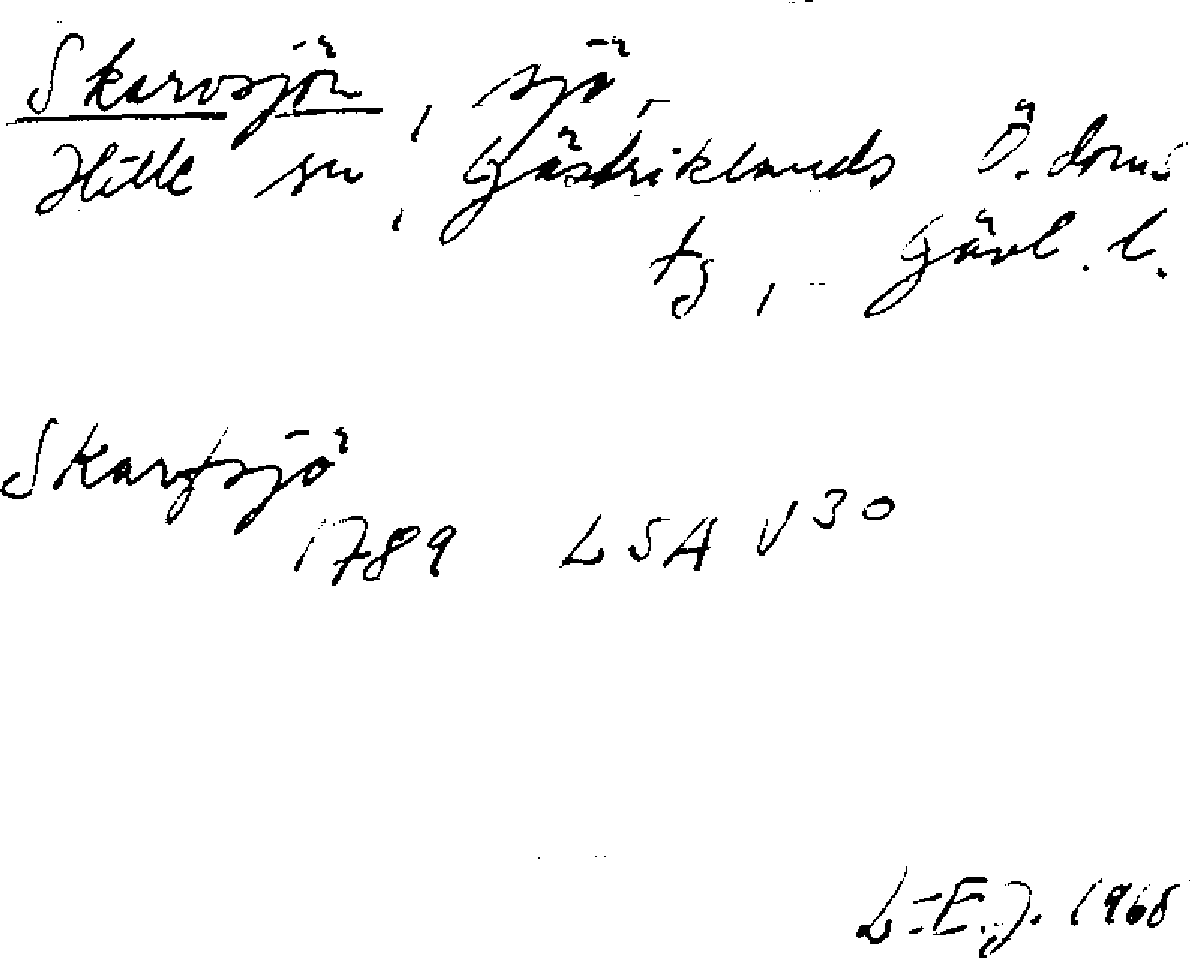 Skarvsjön, sjö
Hille sn, Gästriklands Ö. doms
tg, Gävl. l.
Skarfsjö
1789 LSA V30
L-E.J. 1968